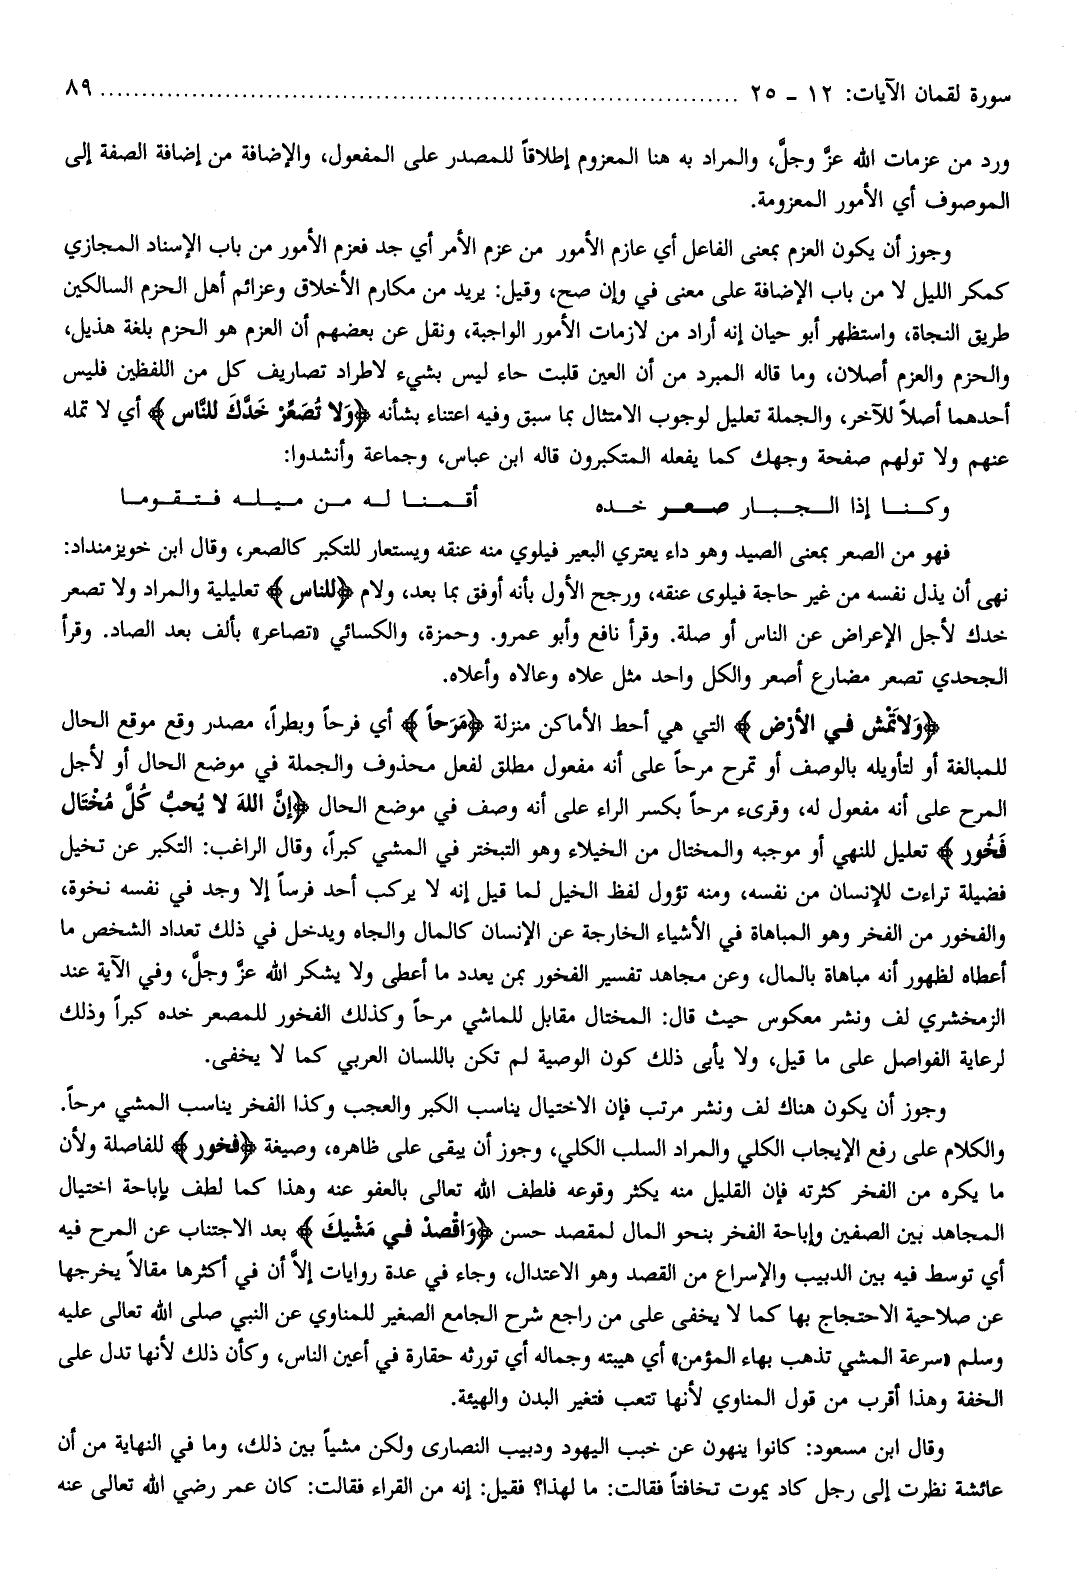 سورة لقمان الآيات: ١٢ ـ ٢٥ ........................................................................ ٨٩
ورد من عزمات الله عزَّ وجلَّ، والمراد به هنا المعزوم إطلاقاً للمصدر على المفعول، والإضافة من إضافة الصفة إلى
الموصوف أي الأمور المعزومة.
وجوز أن يكون العزم بمعنى الفاعل أي عازم الأمور من عزم الأمر أي جد فعزم الأمور من باب الإسناد المجازي
كمكر الليل لا من باب الإضافة على معنى في وإن صح، وقيل: يريد من مكارم الأخلاق وعزائم أهل الحزم السالكين
طريق النجاة، واستظهر أبو حيان إنه أراد من لازمات الأمور الواجبة، ونقل عن بعضهم أن العزم هو الحزم بلغة هذيل،
والحزم والعزم أصلان، وما قاله المبرد من أن العين قلبت حاء ليس بشيء لاطراد تصاريف كل من اللفظين فليس
أحدهما أصلاً للآخر، والجملة تعليل لوجوب الامتثال بما سبق وفيه اعتناء بشأنه ﴿وَلا تُصَعِّرْ خَدَّكَ للنَّاس﴾ أي لا تمله
عنهم ولا تولهم صفحة وجهك كما يفعله المتكبرون قاله ابن عباس، وجماعة وأنشدوا:
وكنا إذا الجبار صعر خده أقمنا له من ميله فتقوما
فهو من الصعر بمعنى الصيد وهو داء يعتري البعير فيلوي منه عنقه ويستعار للتكبر كالصعر، وقال ابن خويزمنداد:
نهى أن يذل نفسه من غير حاجة فيلوى عنقه، ورجح الأول بأنه أوفق بما بعد، ولام ﴿للناس﴾ تعليلية والمراد ولا تصعر
خدك لأجل الإعراض عن الناس أو صلة. وقرأ نافع وأبو عمرو. وحمزة، والكسائي «تصاعر» بألف بعد الصاد. وقرأ
الجحدي تصعر مضارع أصعر والكل واحد مثل علاه وعالاه وأعلاه.
﴿وَلاتَمْش في الأرْض﴾ التي هي أحط الأماكن منزلة ﴿مَرَحاً﴾ أي فرحاً وبطراً، مصدر وقع موقع الحال
للمبالغة أو لتأويله بالوصف أو تمرح مرحاً على أنه مفعول مطلق لفعل محذوف والجملة في موضع الحال أو لأجل
المرح على أنه مفعول له، وقرىء مرحاً بكسر الراء على أنه وصف في موضع الحال ﴿إنَّ اللهَ لا يُحبُّ كُلَّ مُخْتَال
فَخُور﴾ تعليل للنهي أو موجبه والمختال من الخيلاء وهو التبختر في المشي كبراً، وقال الراغب: التكبر عن تخيل
فضيلة تراءت للإنسان من نفسه، ومنه تؤول لفظ الخيل لما قيل إنه لا يركب أحد فرساً إلا وجد في نفسه نخوة،
والفخور من الفخر وهو المباهاة في الأشياء الخارجة عن الإنسان كالمال والجاه ويدخل في ذلك تعداد الشخص ما
أعطاه لظهور أنه مباهاة بالمال، وعن مجاهد تفسير الفخور بمن يعدد ما أعطى ولا يشكر الله عزَّ وجلَّ، وفي الآية عند
الزمخشري لف ونشر معكوس حيث قال: المختال مقابل للماشي مرحاً وكذلك الفخور للمصعر خده كبراً وذلك
لرعاية الفواصل على ما قيل، ولا يأبى ذلك كون الوصية لم تكن باللسان العربي كما لا يخفى.
وجوز أن يكون هناك لف ونشر مرتب فإن الاختيال يناسب الكبر والعجب وكذا الفخر يناسب المشي مرحاً.
والكلام على رفع الإيجاب الكلي والمراد السلب الكلي، وجوز أن يبقى على ظاهره، وصيغة ﴿فخور﴾ للفاصلة ولأن
ما يكره من الفخر كثرته فإن القليل منه يكثر وقوعه فلطف الله تعالى بالعفو عنه وهذا كما لطف بإباحة اختيال
المجاهد بين الصفين وإباحة الفخر بنحو المال لمقصد حسن ﴿وَاقْصدْ في مَشْيكَ﴾ بعد الاجتناب عن المرح فيه
أي توسط فيه بين الدبيب والإسراع من القصد وهو الاعتدال، وجاء في عدة روايات إلاَّ أن في أكثرها مقالاً يخرجها
عن صلاحية الاحتجاج بها كما لا يخفى على من راجع شرح الجامع الصغير للمناوي عن النبي صلى الله تعالى عليه
وسلم «سرعة المشي تذهب بهاء المؤمن» أي هيبته وجماله أي تورثه حقارة في أعين الناس، وكأن ذلك لأنها تدل على
الخفة وهذا أقرب من قول المناوي لأنها تتعب فتغير البدن والهيئة.
وقال ابن مسعود: كانوا ينهون عن خبب اليهود ودبيب النصارى ولكن مشياً بين ذلك، وما في النهاية من أن
عائشة نظرت إلى رجل كاد يموت تخافتاً فقالت: ما لهذا؟ فقيل: إنه من القراء فقالت: كان عمر رضي الله تعالى عنه